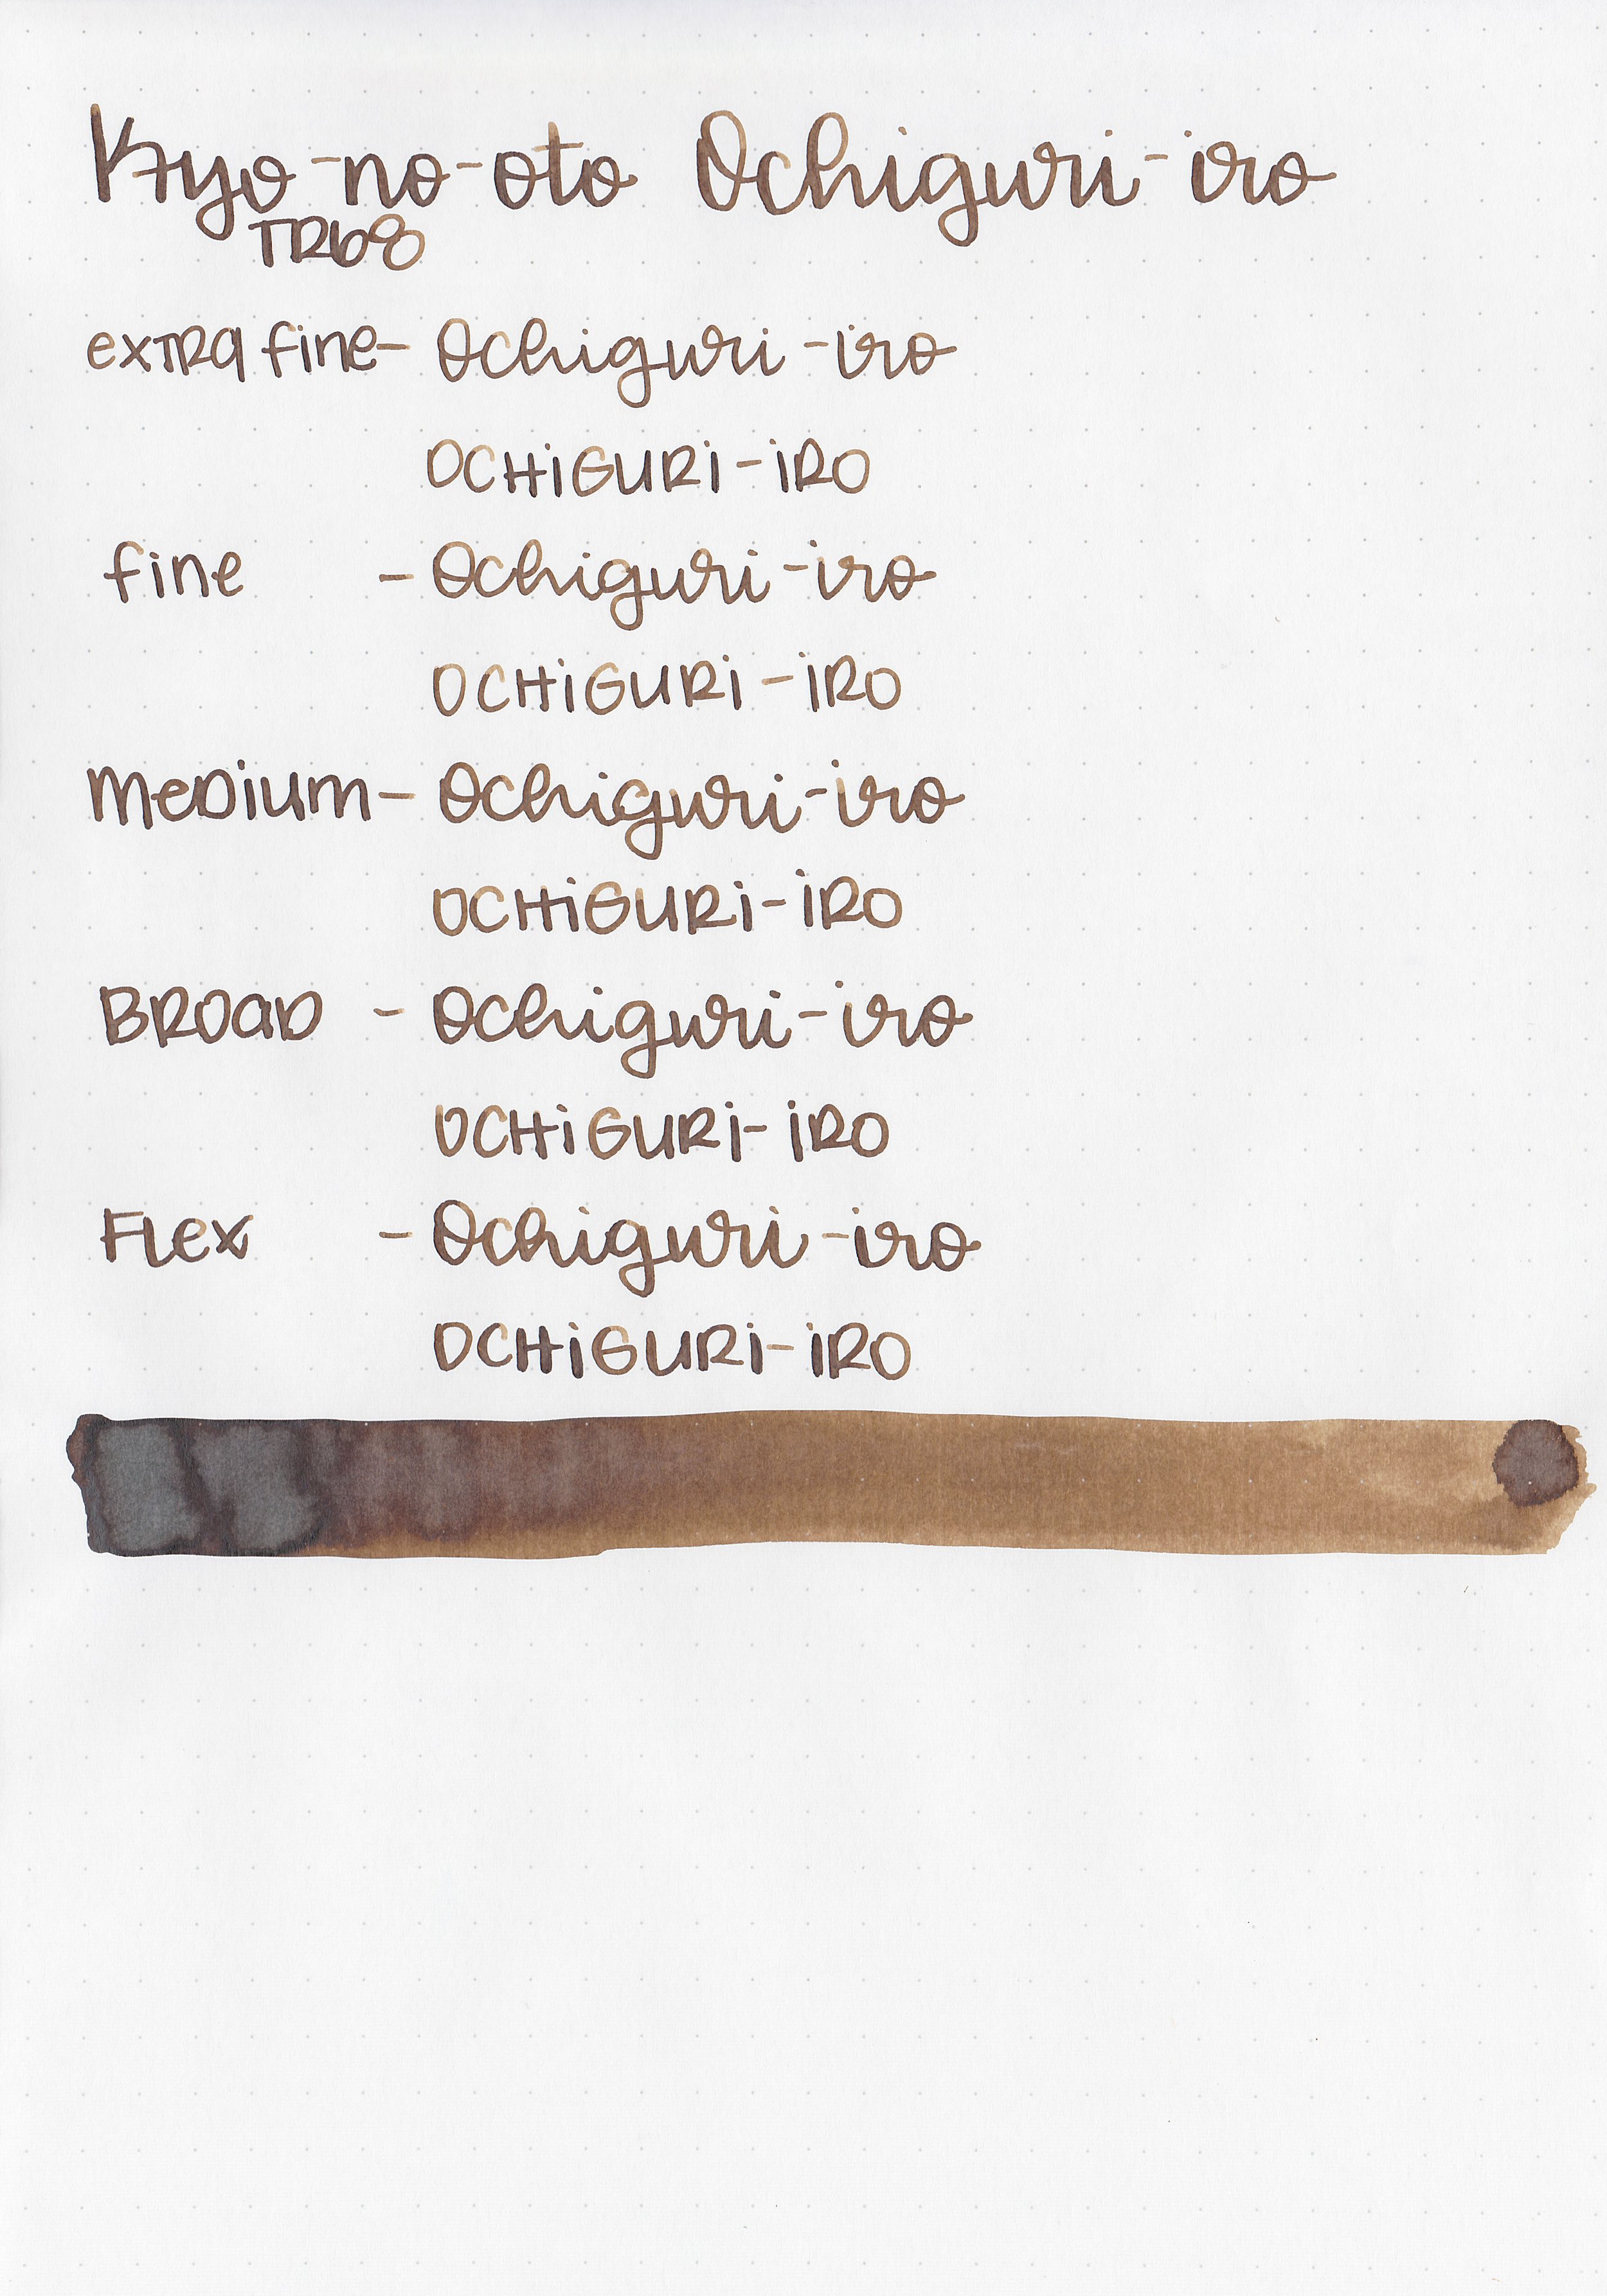 Kyo-no-oto Ochiguri-iro
TR68
extra fine - Ochiguri-iro
OCHiGURi-iRO
fine - Ochiguri-iro
OCHiGURi-iRO
Medium - Ochiguri-iro
OCHiGURi-iRO
Broad - Ochiguri-iro
OCHiGURi-iRO
Flex - Ochiguri-iro
OCHiGURi-iRO